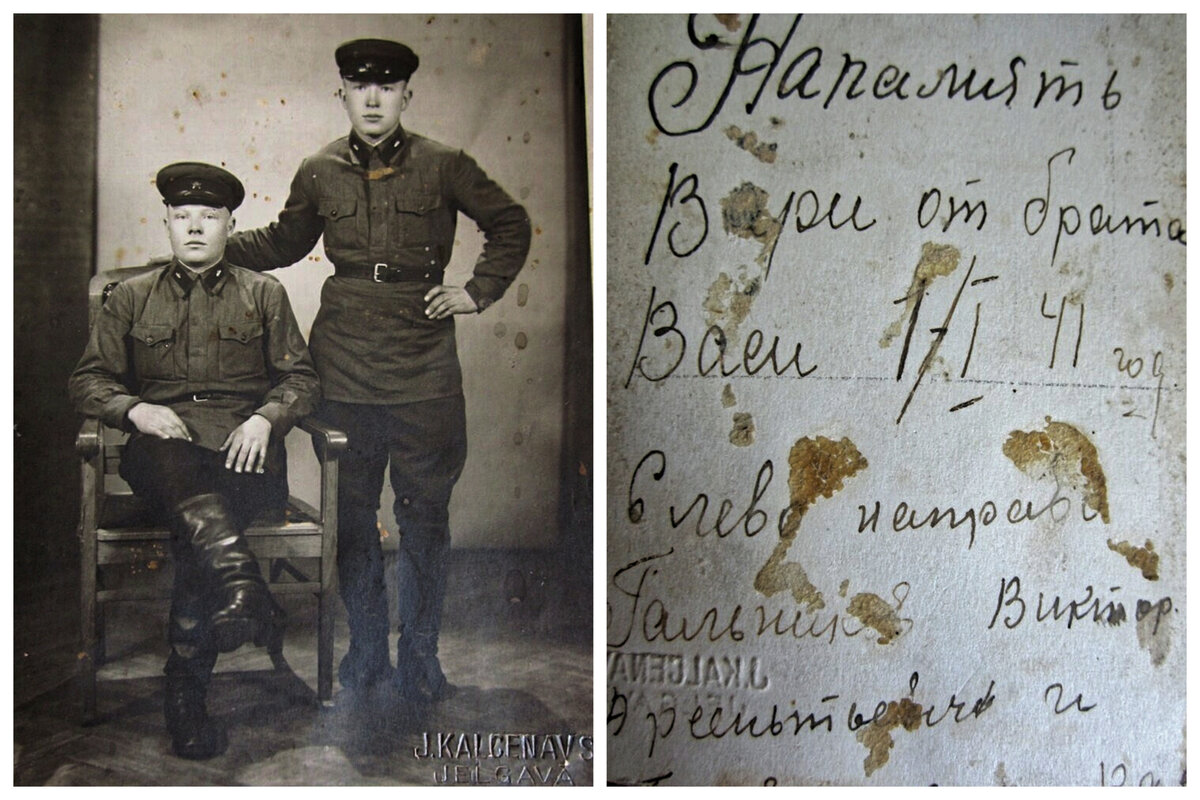 J.KALCENAVS
JELGAVA
На память
Вари от брата
Васи 1/I 41 год
С лево направо
Гальников Виктор
и
J.KALCENAV